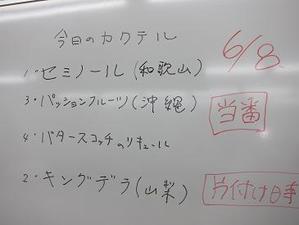 今日のカクテル
6/8
1・セミノール(和歌山)
3・パッションフルーツ(沖縄)
当番
4・バタースコッチのリキュール
2・キングデラ(山梨)
片付け